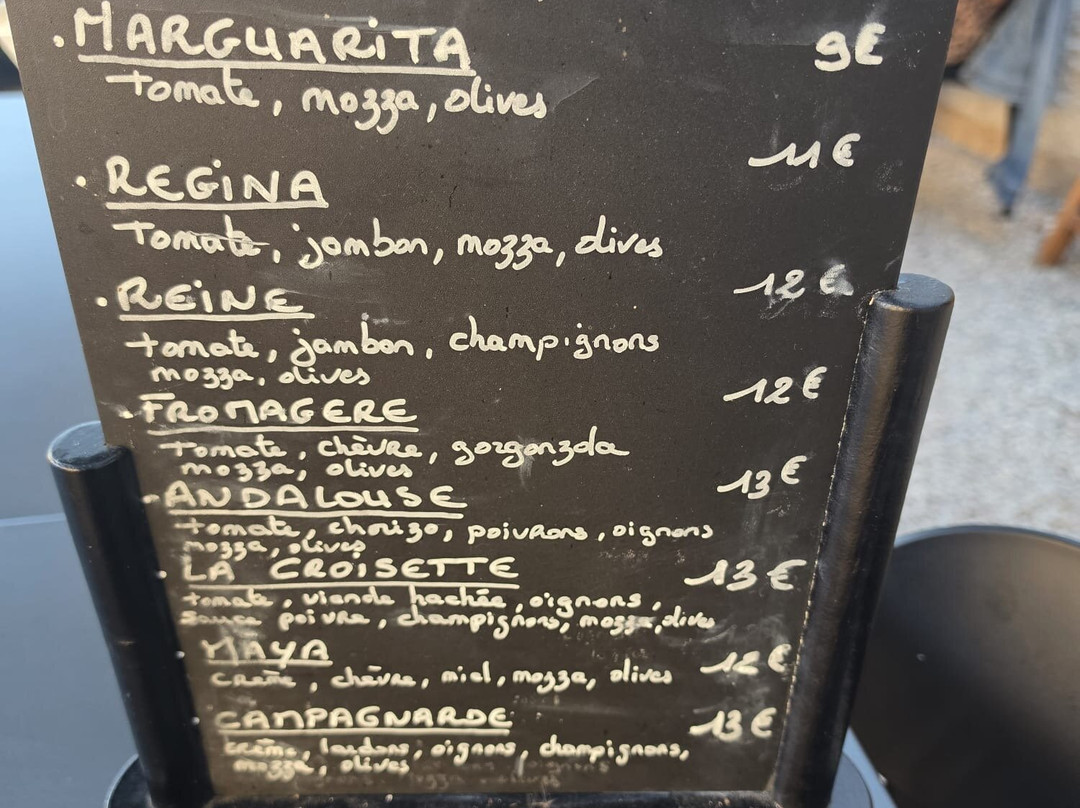 . MARGUARITA 9€
Tomate, mozza, olives
. REGINA 11€
Tomate, jambon, mozza, olives
. REINE 12€
tomate, jambon, champignons
mozza, olives
. FROMAGERE 12€
Tomate, chèvre, gorgonzola
mozza, olives
- ANDALOUSE 13€
tomate, chorizo, poivrons, oignons
mozza, olives
. LA CROISETTE 13€
tomate, viande hachée, oignons,
sauce poivre, champignons, mozza, olives
. MAYA 12€
crème, chèvre, miel, mozza, olives
. CAMPAGNARDE 13€
crème, lardons, oignons, champignons,
mozza, olives